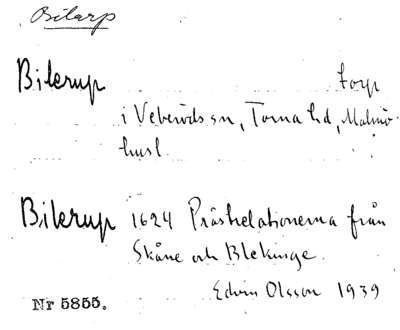 Bilarp
Bilerup torp
i Veberöds sn, Torna hd, Malmö-
husl.
Bilerup 1624 Prästrelationerna från
Skåne och Blekinge.
Edvin Olsson 1939
Nr 5855.